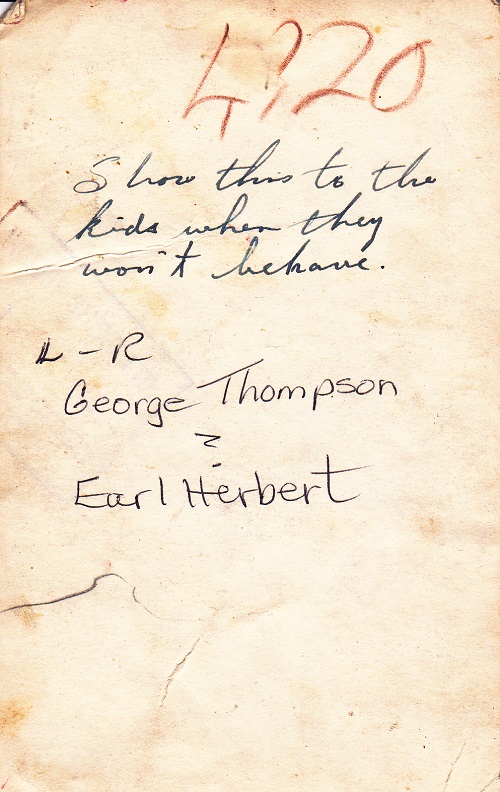 4320
Show this to the
kids when they
won't behave.
L-R
George Thompson
?
Earl Herbert